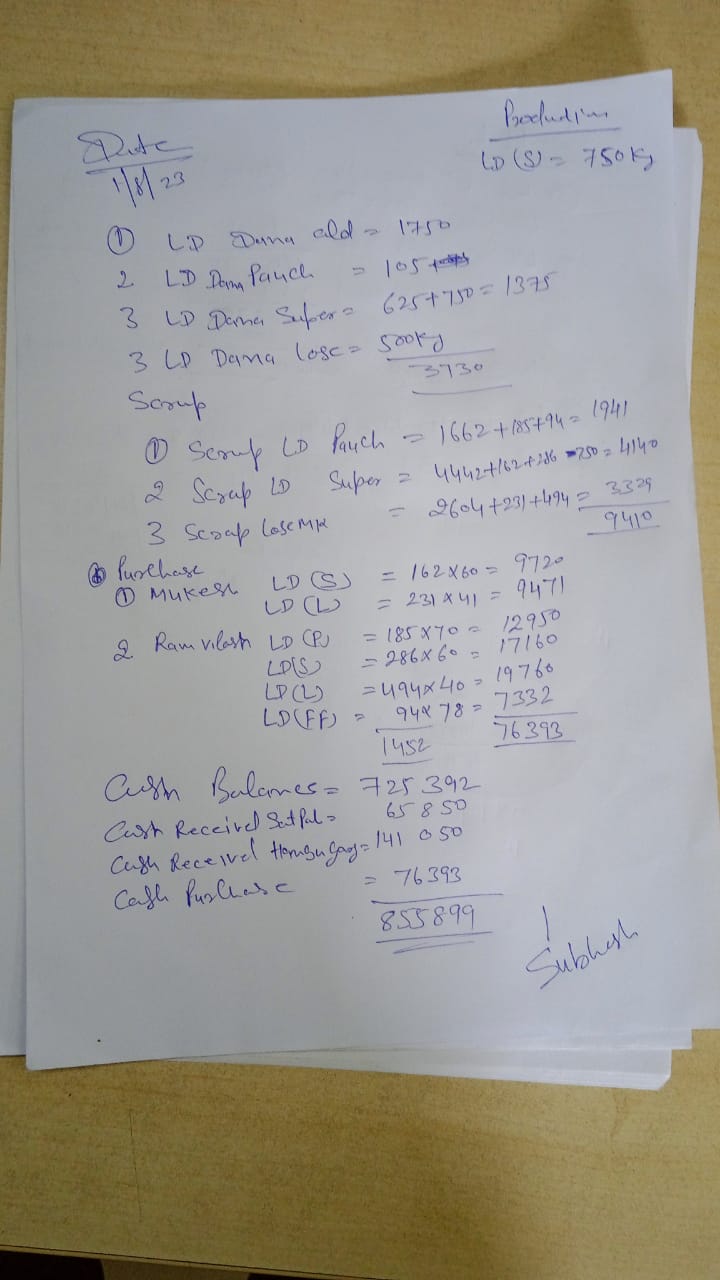 Date
1/8/23
Production
LD (S) = 750 Kg
① LD Dana old = 1750
2 LD Dana Pauch = 105
3 LD Dana Super = 625+750 = 1375
3 LD Dana Lose = 500Kg
3730
Scrap
① Scrap LD Pauch = 1662+185+94 = 1941
2 Scrap LD Super = 4442+162+286-750 = 4140
3 Scrap Lose MK = 2604+231+494 = 3329
9410
Purchase
① Mukesh LD (S) = 162x60 = 9720
LD (L) = 231x41 = 9471
2 Ram vilash LD (P) = 185x70 = 12950
LD(S) = 286x60 = 17160
LD(L) = 494x40 = 19760
LD(FF) = 94x78 = 7332
1452 76393
Cash Balance = 725392
Cash Received Satpal = 65850
Cash Received = 141050
Cash Purchase = 76393
855899
Subhash